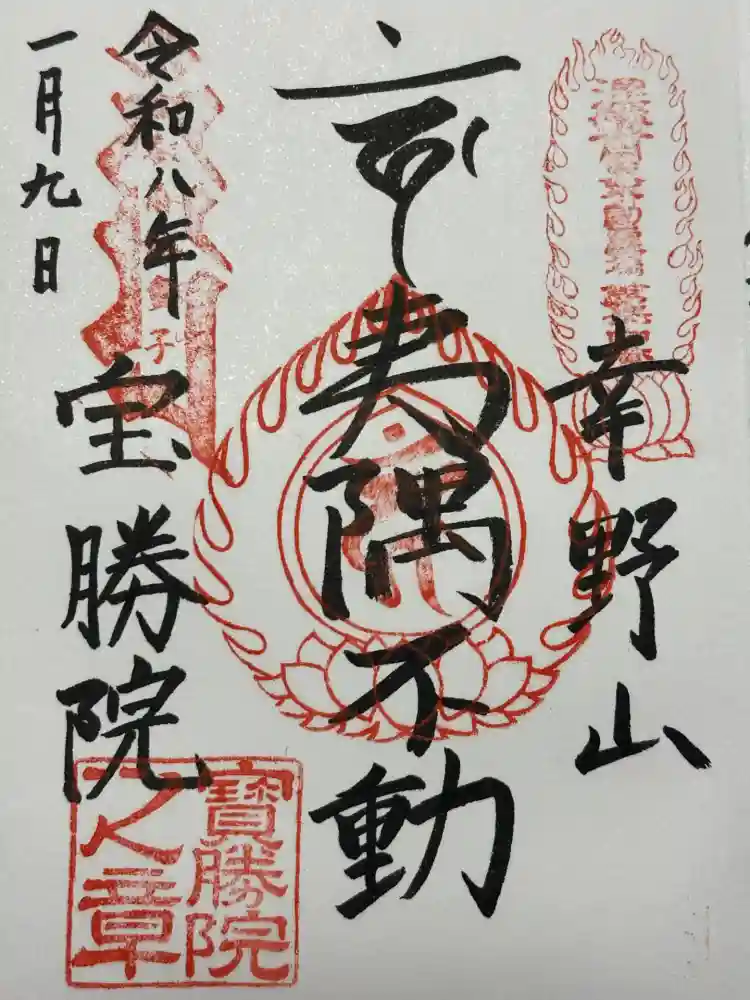 幸野山
夷隅不動
令和八年
一月九日
宝勝院
寶勝院
之章
子